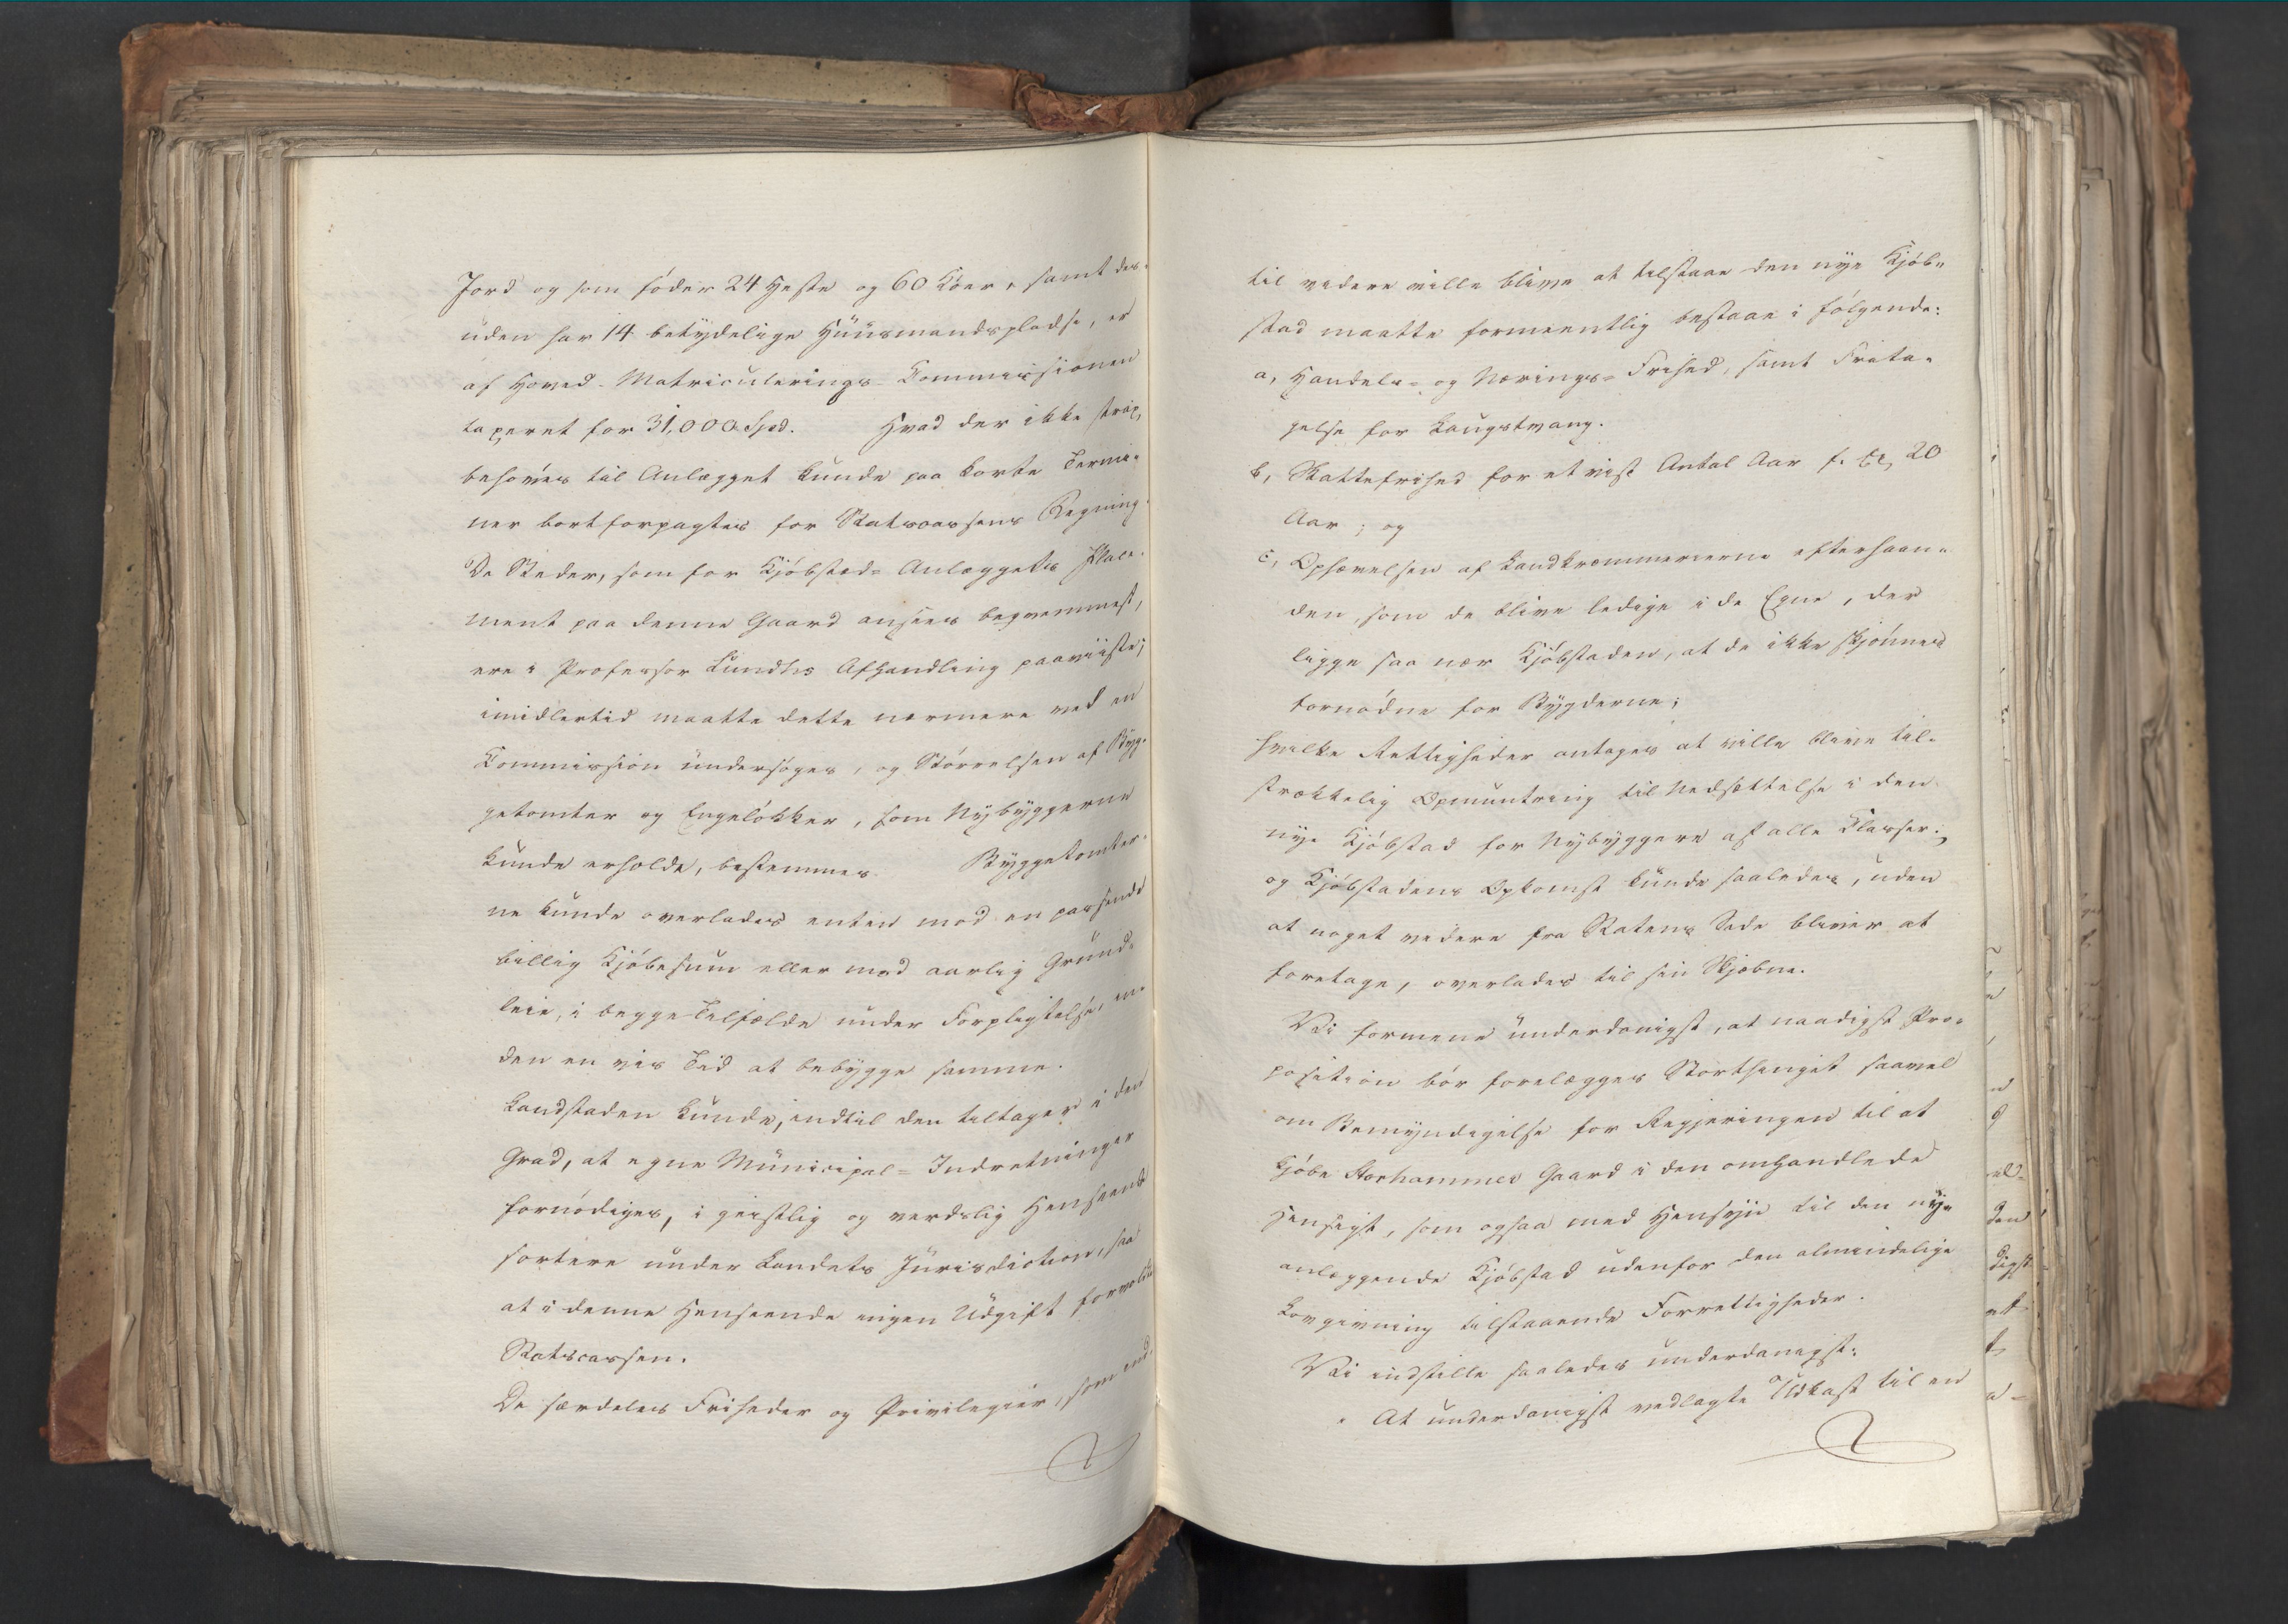 Jord og som föder 24 Heste og 60 Köer, samt des-
uden har 14 betydelige Huusmandspladse, er
af Hoved-Matriculerings-Commissionen
taxeret for 31,000 Spd. Hvad der ikke strax
behöves til Anlægget kunde paa korte Termi-
ner bortforpagtes for Statscassens Regning.
De Steder, som for Kjöbstad-Anlæggets Place-
ment paa denne Gaard ansees beqvemmest,
ere i Professor Lundhs Afhandling paaviiste;
imidlertid maatte dette nærmere ved en
Commission undersöges, og Störrelsen af Byg-
getomter og Engelökker, som Nybyggerne
kunde erholde, bestemmes. Byggetomter-
ne kunde overlades enten mod en passende
billig Kjöbesum eller mod aarlig Grund-
leie, i begge Tilfælde under Forpligtelse, in-
den en vis Tid at bebygge samme.
Landstaden kunde, indtil den tiltager i den
Grad, at egne Municipal-Indretninger
fornödiges, i geistlig og verdslig Henseende
sortere under Landets Jurisdiction, saa
at i denne Henseende ingen Udgift forvoldes
Statscassen.
De særdeles Friheder og Privilegier, som ind-
til videre ville blive at tilstaae den nye Kjöb-
stad maatte formeentlig bestaae i fölgende:
a, Handels- og Nærings-Frihed, samt Frita-
gelse for Laugstvang.
b, Skattefrihed for et vist Antal Aar f. Ex. 20
Aar; og
c, Ophævelsen af Landkræmmerierne efterhaan-
den, som de blive ledige i de Egne, der
ligge saa nær Kjöbstaden, at de ikke skjönnes
fornödne for Bygderne;
hvilke Rettigheder antages at ville blive til-
strækkelig Opmuntring til Nedsættelse i den
nye Kjöbstad for Nybyggere af alle Classer;
og Kjöbstadens Opkomst kunde saaledes, uden
at noget videre fra Statens Side bliver at
foretage, overlades til sin Skjæbne.
Vi formene underdanigst, at naadigst Pro-
position bör forelægges Storthinget saavel
om Bemyndigelse for Regjeringen til at
kjöbe Storhammer Gaard i den omhandlede
Hensigt, som ogsaa med Hensyn til den nye
anlæggende Kjöbstad udenfor den almindelige
Lovgivning tilstaaende Forrettigheder.
Vi indstille saaledes underdanigst:
At underdanigst vedlagte Udkast til en